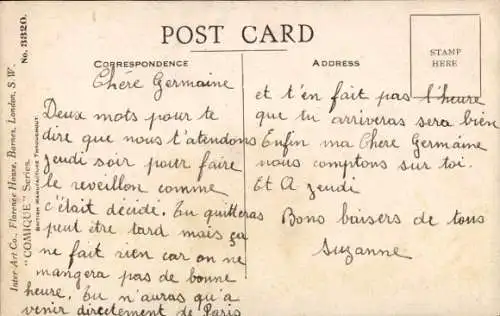 POST CARD
CORRESPONDENCE
ADDRESS
STAMP
HERE
Inter-Art Co., Florence House, Barnes, London, S. W.
"COMIQUE" Series. No. 3320.
BRITISH MANUFACTURE THROUGHOUT.
Chère Germaine
Deux mots pour te
dire que nous t'atendons
jeudi soir pour faire
le reveillon comme
c'était décidé. Tu quitteras
peut être tard mais ça
ne fait rien car on ne
mangera pas de bonne
heure. Tu n'auras qu'a
venir directement de Paris
et t'en fait pas l'heure
que tu arriveras sera bien
Enfin ma Chere Germaine
nous comptons sur toi.
Et A jeudi
Bons baisers de tous
Suzanne